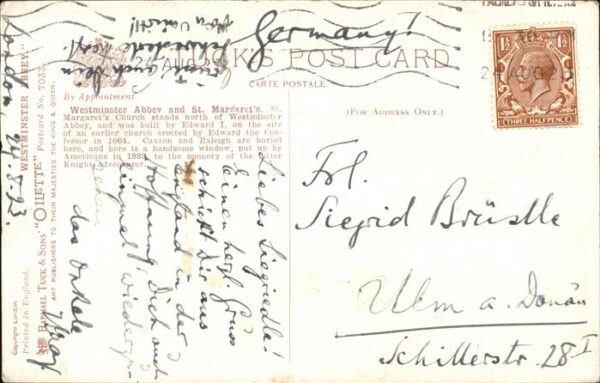 Germany!
24 AUG
K'S POST CARD
CARTE POSTALE.
By Appointment.
(FOR ADDRESS ONLY.)
Westminster Abbey and St. Margaret's. St.
Margaret's Church stands north of Westminster
Abbey, and was built by Edward I, on the site
of an earlier church erected by Edward the Con-
fessor in 1064. Caxton and Raleigh are buried
here, and here is a handsome window, put up by
Americans in 1882, to the memory of the latter
Knight Adventurer.
24 AUG
THREE HALFPENCE
Frl.
Siegrid Brüstle
Ulm a. Donau
Schillerstr 28 I
Liebes Siegriedle!
Einen herzl. Gruss
schickt Dir aus
England in der
Hoffnung, Dich auch
einmal wieder
das Onkele
London 24.8.23.
WESTMINSTER ABBEY.
RAPHAEL TUCK & SONS' "OILETTE" Postcard No. 7033.
ART PUBLISHERS TO THEIR MAJESTIES THE KING & QUEEN.
Copyright London
Printed in England.